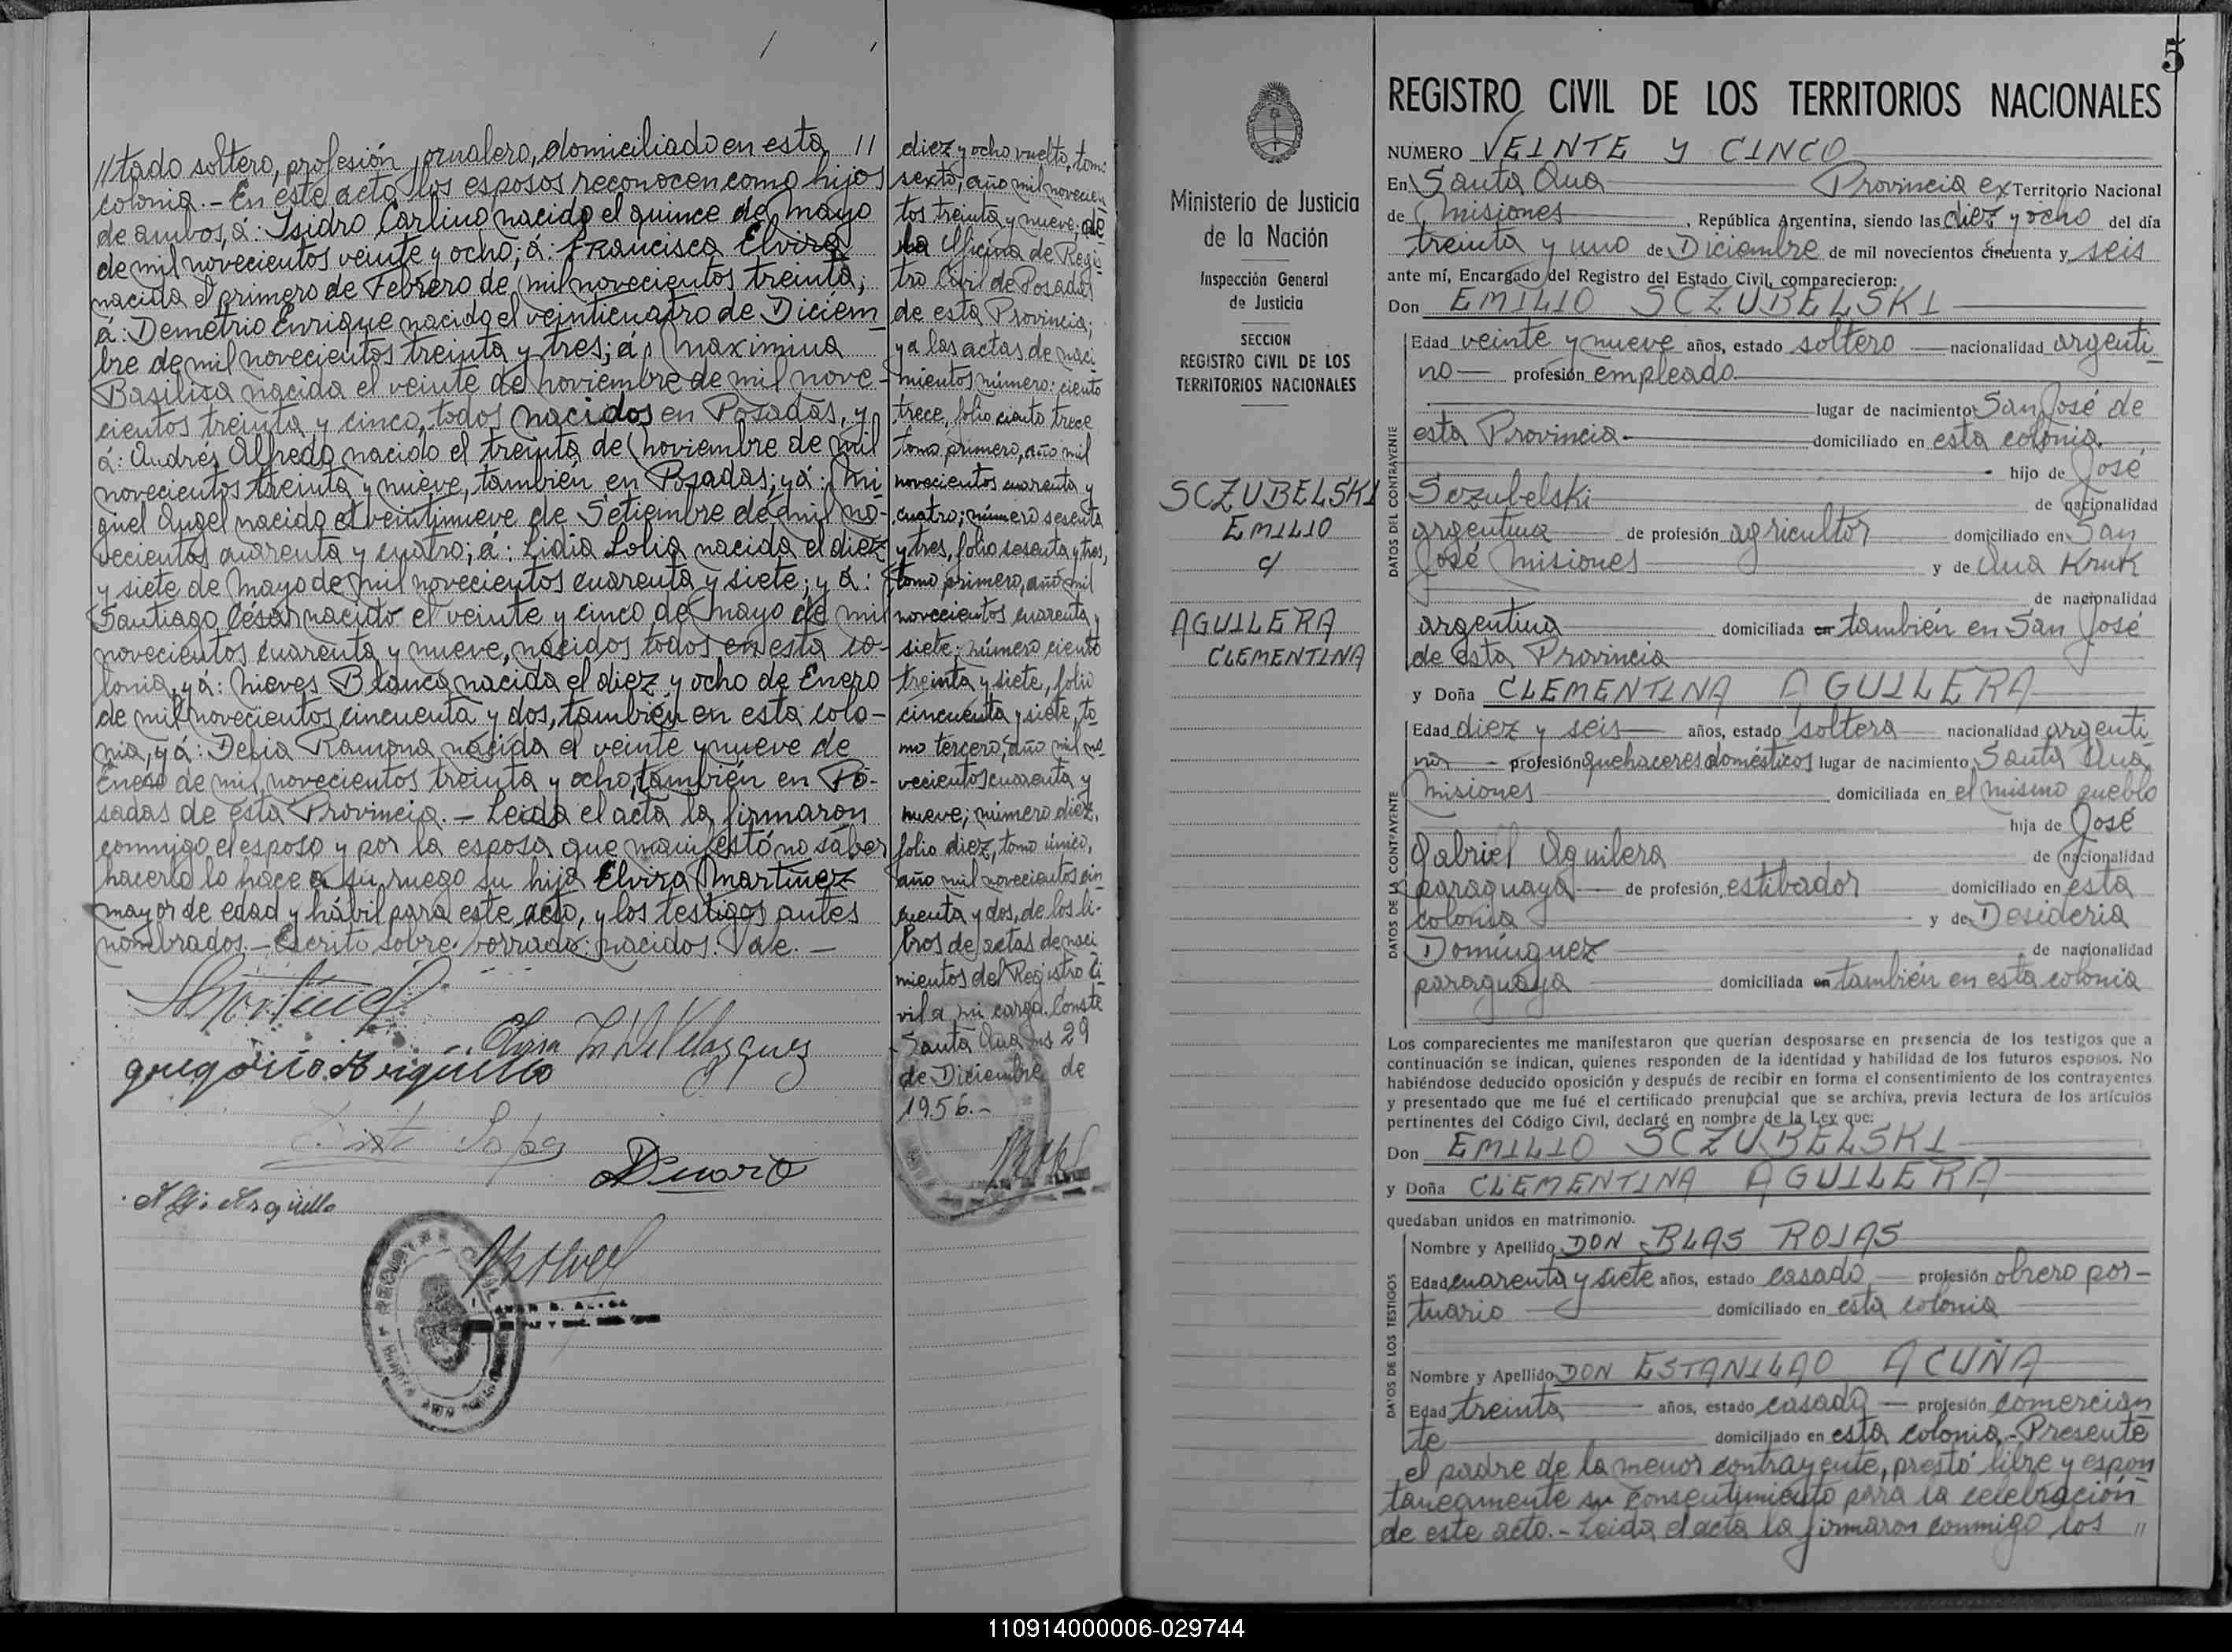 //tado soltero, profesión jornalero, domiciliado en esta //
colonia.- En este acto los esposos reconocen como hijos
de ambos, á: Isidro Carlino nacido el quince de Mayo
de mil novecientos veinte y ocho; á: Francisca Elvira
nacida el primero de Febrero de mil novecientos treinta;
á: Demetrio Enrique nacido el veinticuatro de Diciem-
bre de mil novecientos treinta y tres; á: Maximina
Basilisa nacida el veinte de Noviembre de mil nove-
cientos treinta y cinco, todos nacidos en Posadas, y
á: Andrés Alfredo nacido el treinta de Noviembre de mil
novecientos treinta y nueve, también en Posadas; y á: Mi-
guel Angel nacido el veintinueve de Setiembre de mil no-
vecientos cuarenta y cuatro; á: Lidia Lolia nacida el diez
y siete de Mayo de mil novecientos cuarenta y siete; y á:
Santiago César nacido el veinte y cinco de Mayo de mil
novecientos cuarenta y nueve, nacidos todos en esta co-
lonia, y á: Nieves Blanca nacida el diez y ocho de Enero
de mil novecientos cincuenta y dos, también en esta colo-
nia, y á: Delia Ramona nacida el veinte y nueve de
Enero de mil novecientos treinta y ocho, también en Po-
sadas de esta Provincia.- Leida el acta la firmaron
conmigo el esposo y por la esposa que manifestó no saber
hacerlo lo hace a su ruego su hija Elvira Martinez
mayor de edad y hábil para este acto, y los testigos antes
nombrados.- Escrito sobre borrado: nacidos. Vale.-
Elvira M. de Velazquez
gregorio Arguello
diez y ocho vuelto, tomo
sexto, año mil novecien
tos treinta y nueve, de
la Oficina de Regis-
tro Civil de Posadas
de esta Provincia;
y a las actas de naci
mientos número: ciento
trece, folio ciento trece
tomo primero, año mil
novecientos cuarenta y
cuatro; número sesenta
y tres, folio sesenta y tres,
tomo primero, año mil
novecientos cuarenta y
siete; número ciento
treinta y siete, folio
cincuenta y siete, to
mo tercero, año mil no
vecientos cuarenta y
nueve; número diez,
folio diez, tomo único,
año mil novecientos cin
cuenta y dos, de los li-
bros de actas de naci
mientos del Registro Ci
vil a mi cargo. Conste
Santa Ana Ms 29
de Diciembre de
1956.-
5
Ministerio de Justicia
de la Nación
Inspección General
de Justicia
SECCION
REGISTRO CIVIL DE LOS
TERRITORIOS NACIONALES
SCZUBELSKI
EMILIO
c/
AGUILERA
CLEMENTINA
REGISTRO CIVIL DE LOS TERRITORIOS NACIONALES
NUMERO VEINTE Y CINCO
En Santa Ana Provincia ex Territorio Nacional
de Misiones, República Argentina, siendo las diez y ocho del día
treinta y uno de Diciembre de mil novecientos cincuenta y seis
ante mí, Encargado del Registro del Estado Civil, comparecieron:
Don EMILIO SCZUBELSKI
DATOS DEL CONTRAYENTE
Edad veinte y nueve años, estado soltero nacionalidad argenti
no profesión empleado
lugar de nacimiento San José de
esta Provincia domiciliado en esta colonia.
hijo de José
Sczubelski de nacionalidad
argentina de profesión agricultor domiciliado en San
José Misiones y de Ana Kruk
de nacionalidad
argentina domiciliada en también en San José
de esta Provincia
y Doña CLEMENTINA AGUILERA
DATOS DE LA CONTRAYENTE
Edad diez y seis años, estado soltera nacionalidad argenti
na profesión quehaceres domésticos lugar de nacimiento Santa Ana
Misiones domiciliada en el mismo pueblo
hija de José
Gabriel Aguilera de nacionalidad
paraguaya de profesión estibador domiciliado en esta
colonia y de Desideria
Domínguez de nacionalidad
paraguaya domiciliada en también en esta colonia
Los comparecientes me manifestaron que querían desposarse en presencia de los testigos que a
continuación se indican, quienes responden de la identidad y habilidad de los futuros esposos. No
habiéndose deducido oposición y después de recibir en forma el consentimiento de los contrayentes
y presentado que me fué el certificado prenupcial que se archiva, previa lectura de los artículos
pertinentes del Código Civil, declaré en nombre de la Ley que:
Don EMILIO SCZUBELSKI
y Doña CLEMENTINA AGUILERA
quedaban unidos en matrimonio.
DATOS DE LOS TESTIGOS
Nombre y Apellido DON BLAS ROJAS
Edad cuarenta y siete años, estado casado profesión obrero por-
tuario domiciliado en esta colonia
Nombre y Apellido DON ESTANILAO ACUÑA
Edad treinta años, estado casado profesión comercian
te domiciliado en esta colonia.- Presente
el padre de la menor contrayente, prestó libre y espon
taneamente su consentimiento para la celebración
de este acto.- Leida el acta la firmaron conmigo los //
110914000006-029744